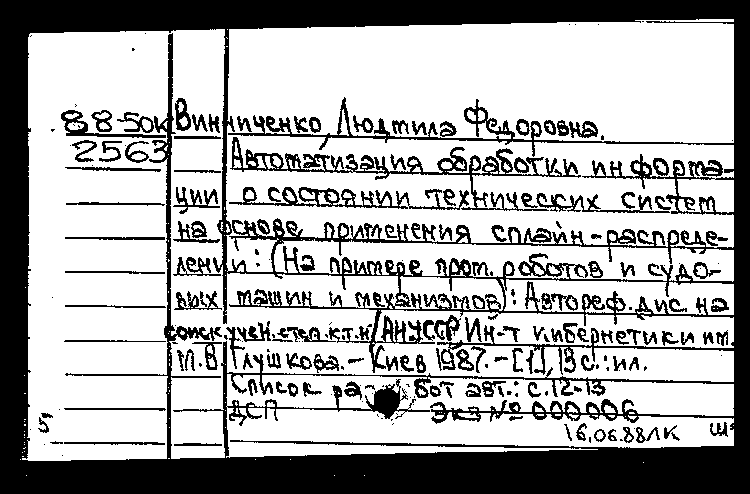 88-50к Винниченко, Людмила Федоровна.
2563 Автоматизация обработки информа-
ции о состоянии технических систем
на основе применения сплайн-распреде-
лений: (На примере пром. роботов и судо-
вых машин и механизмов): Автореф. дис. на
соиск. учен. степ. к.т.н/АН УССР, Ин-т кибернетики им.
М.В. Глушкова. - Киев 1987. - [1], 13 с.: ил.
Список работ авт.: с. 12-13
ДСП Экз № 000006
5
16.06.88 ЛК